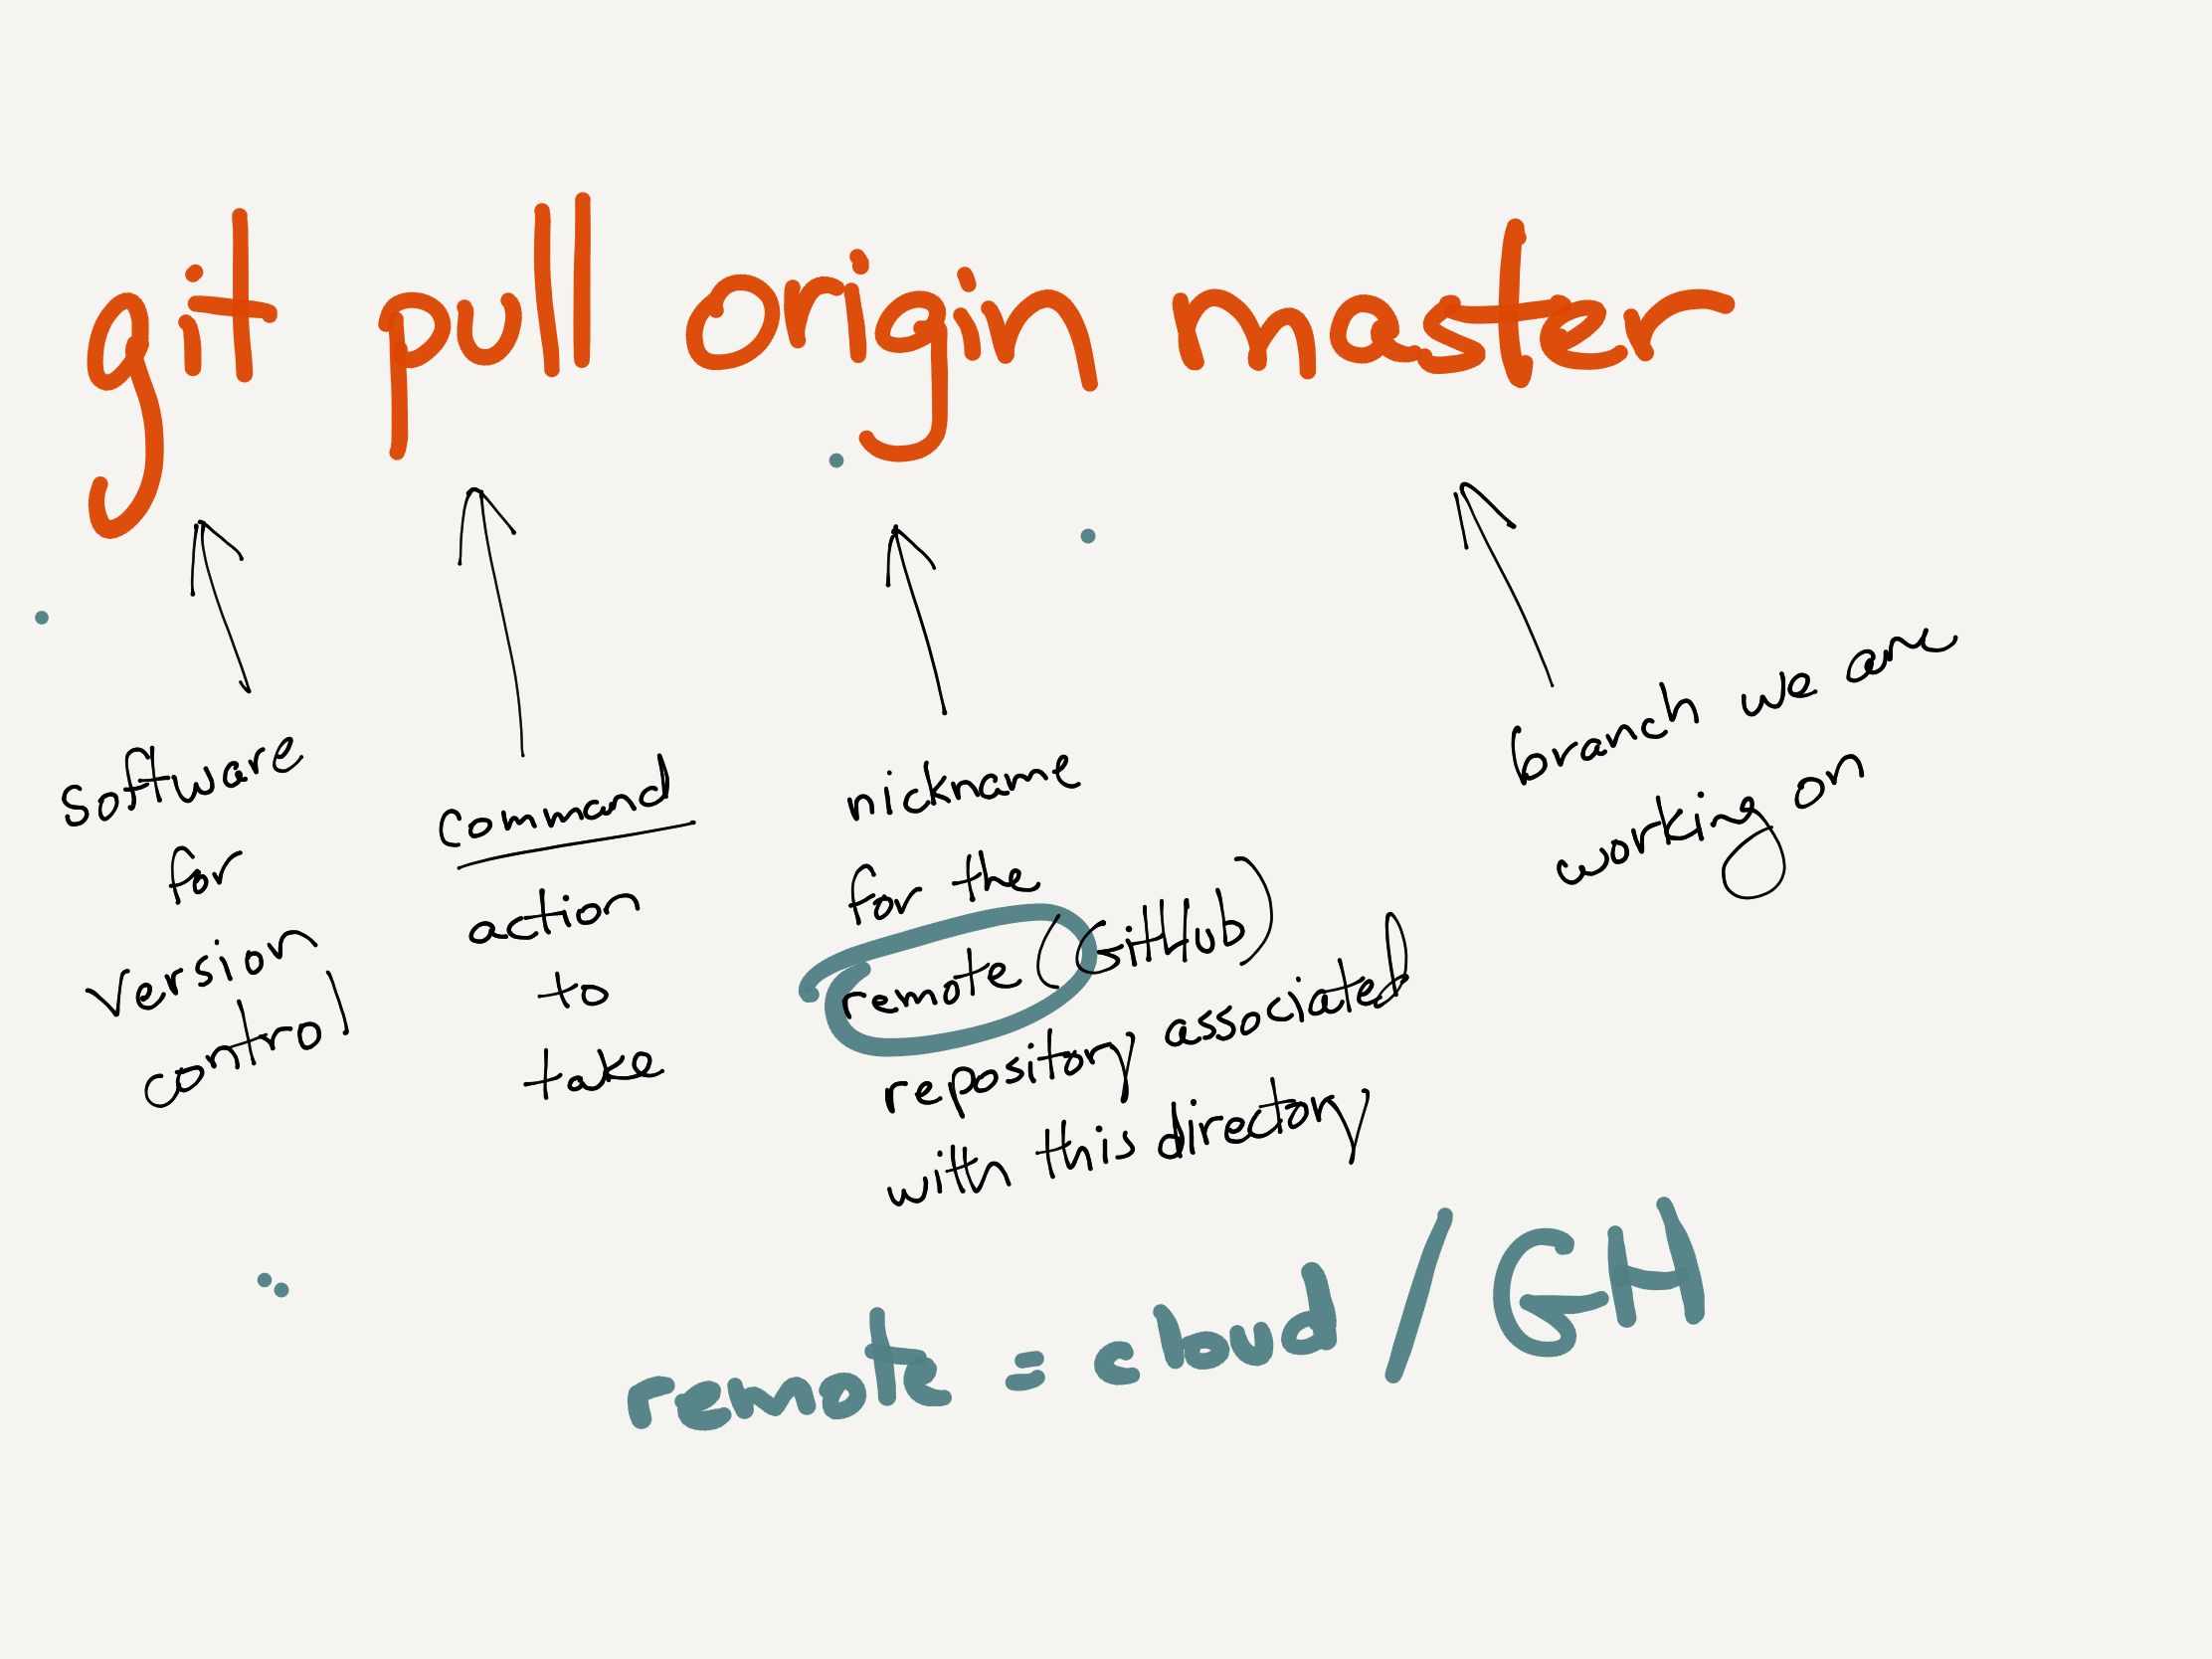 git pull origin master
software
for
version
control
command
action
to
take
nickname
for the
remote (GitHub)
repository associated
with this directory
branch we are
working on
remote = cloud / GH